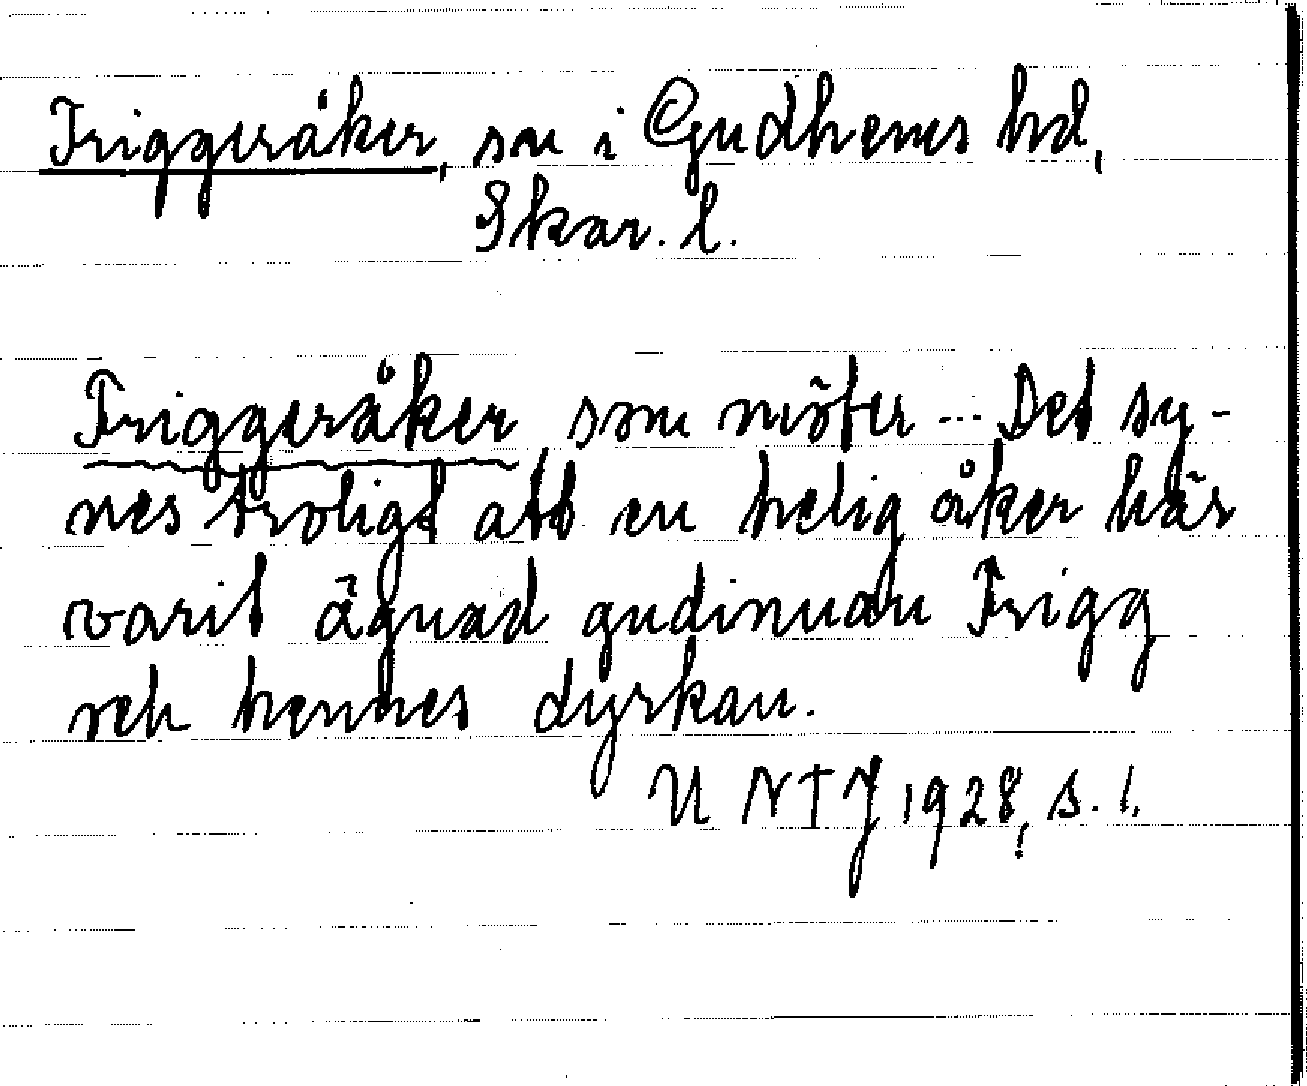 Friggeråker, sn i Gudhems hd,
Skar. l.
Friggeråker som möter ... Det sy-
nes troligt att en helig åker här
varit ägnad gudinnan Frigg
och hennes dyrkan.
U NTJ 1928, s. 1.